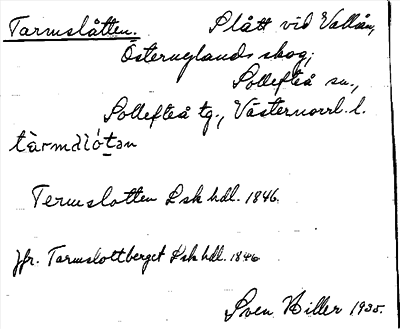 Tarmslåtten. Slått vid Vallån,
Österuglands skog,
Sollefteå sn.,
Sollefteå tg., Västernorrl. l.
Termslotten Lsk hdl. 1846.
Jfr. Tarmslottberget Lsk hdl. 1846
Sven Hiller 1935.